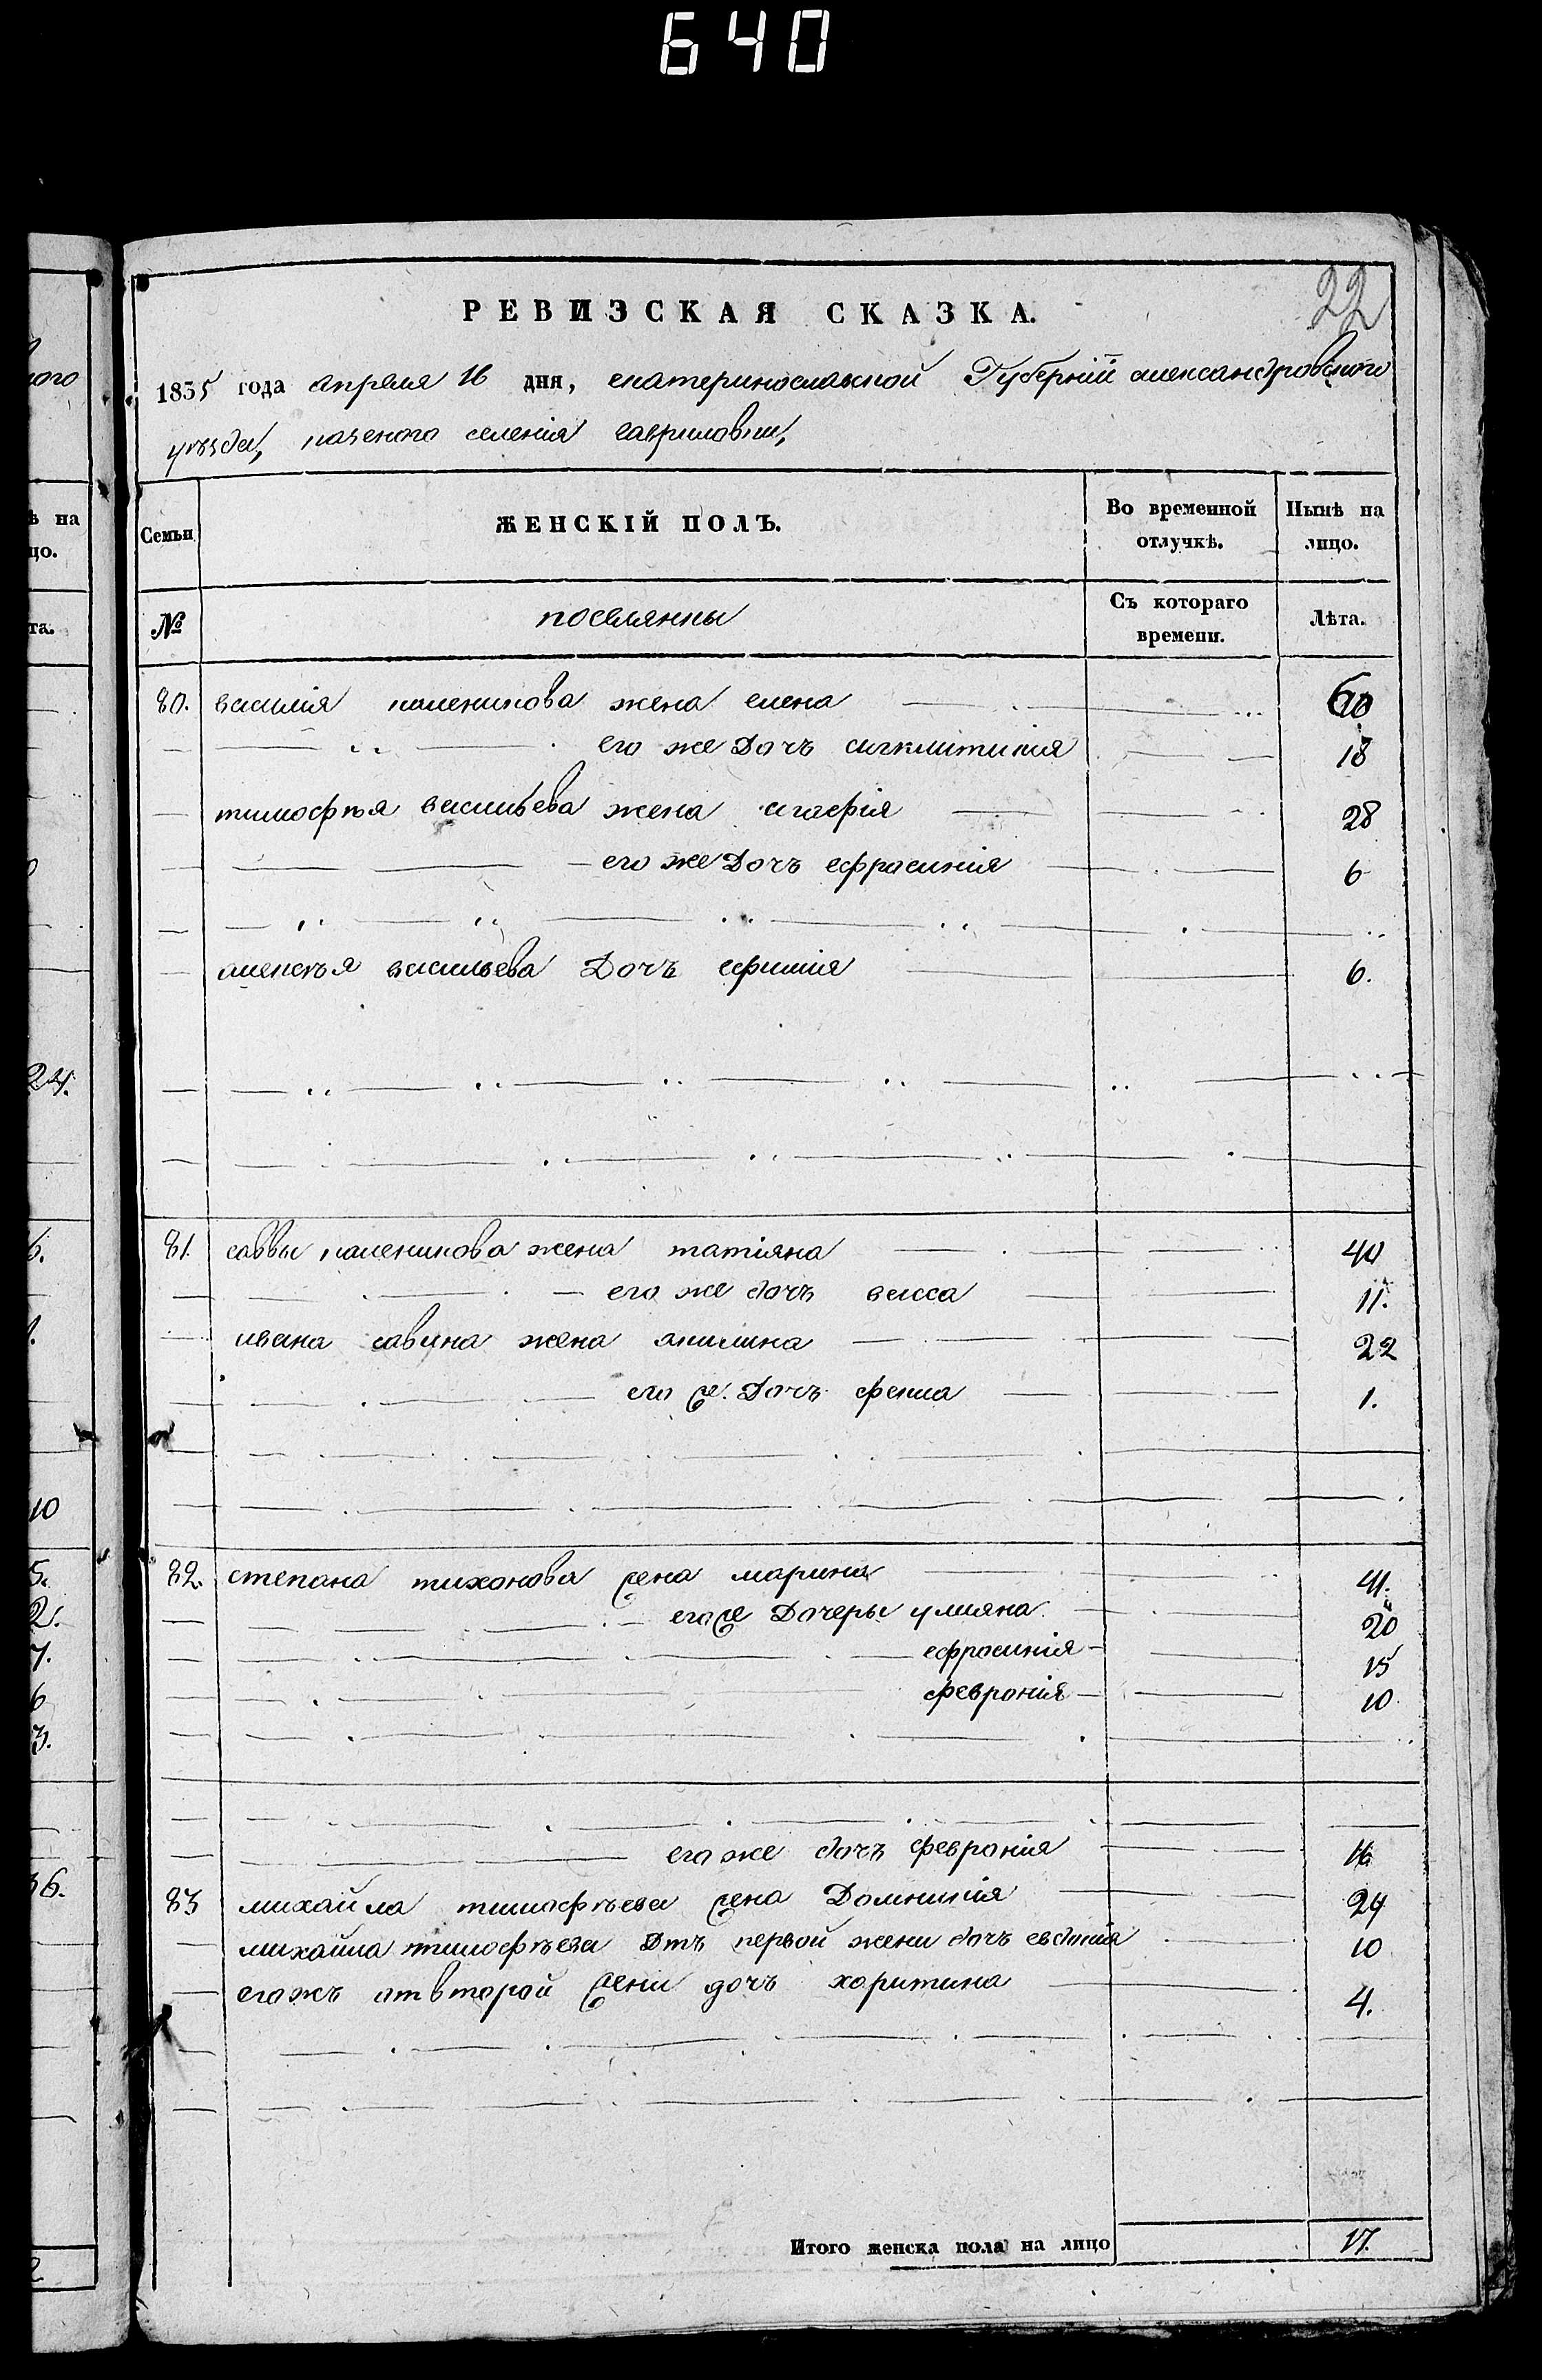 640
22
РЕВИЗСКАЯ СКАЗКА.
1835 года апреля 16 дня, екатеринославской Губернiй александровского
уѣзда, казеного селенiя гавриловки,
Семьи
ЖЕНСКІЙ ПОЛЪ.
Во временной отлучкѣ.
Нынѣ на лицо.
№
поселянны
Съ котораго времени.
Лѣта.
80. василiя каленикова жена елена 60
его же Дочъ сигклитикiя 18
тимофѣя васильева жена агафiя 28
его же Дочъ ефросинiя 6
алексѣя васильева Дочъ ефимiя 6.
81. саввы каленикова жена татiяна 40
его же дочъ васса 11.
ивана савина жена акилина 22
его же. Дочъ фекла 1.
82. степана тихонова жена марина 41.
его же Дочеры улияна 20
ефросинiя 15
феврония 10
его же дочъ февронiя 16
83 михайла тимофѣева жена Домникiя 24
михайла тимофѣева Отъ первой жени дочъ евдокия 10
егожъ отвторой жени дочъ харитина 4.
Итого женска пола на лицо 17.
ѣ на
цо.
та.
24.
10
5.
2.
7.
6
3.
36.